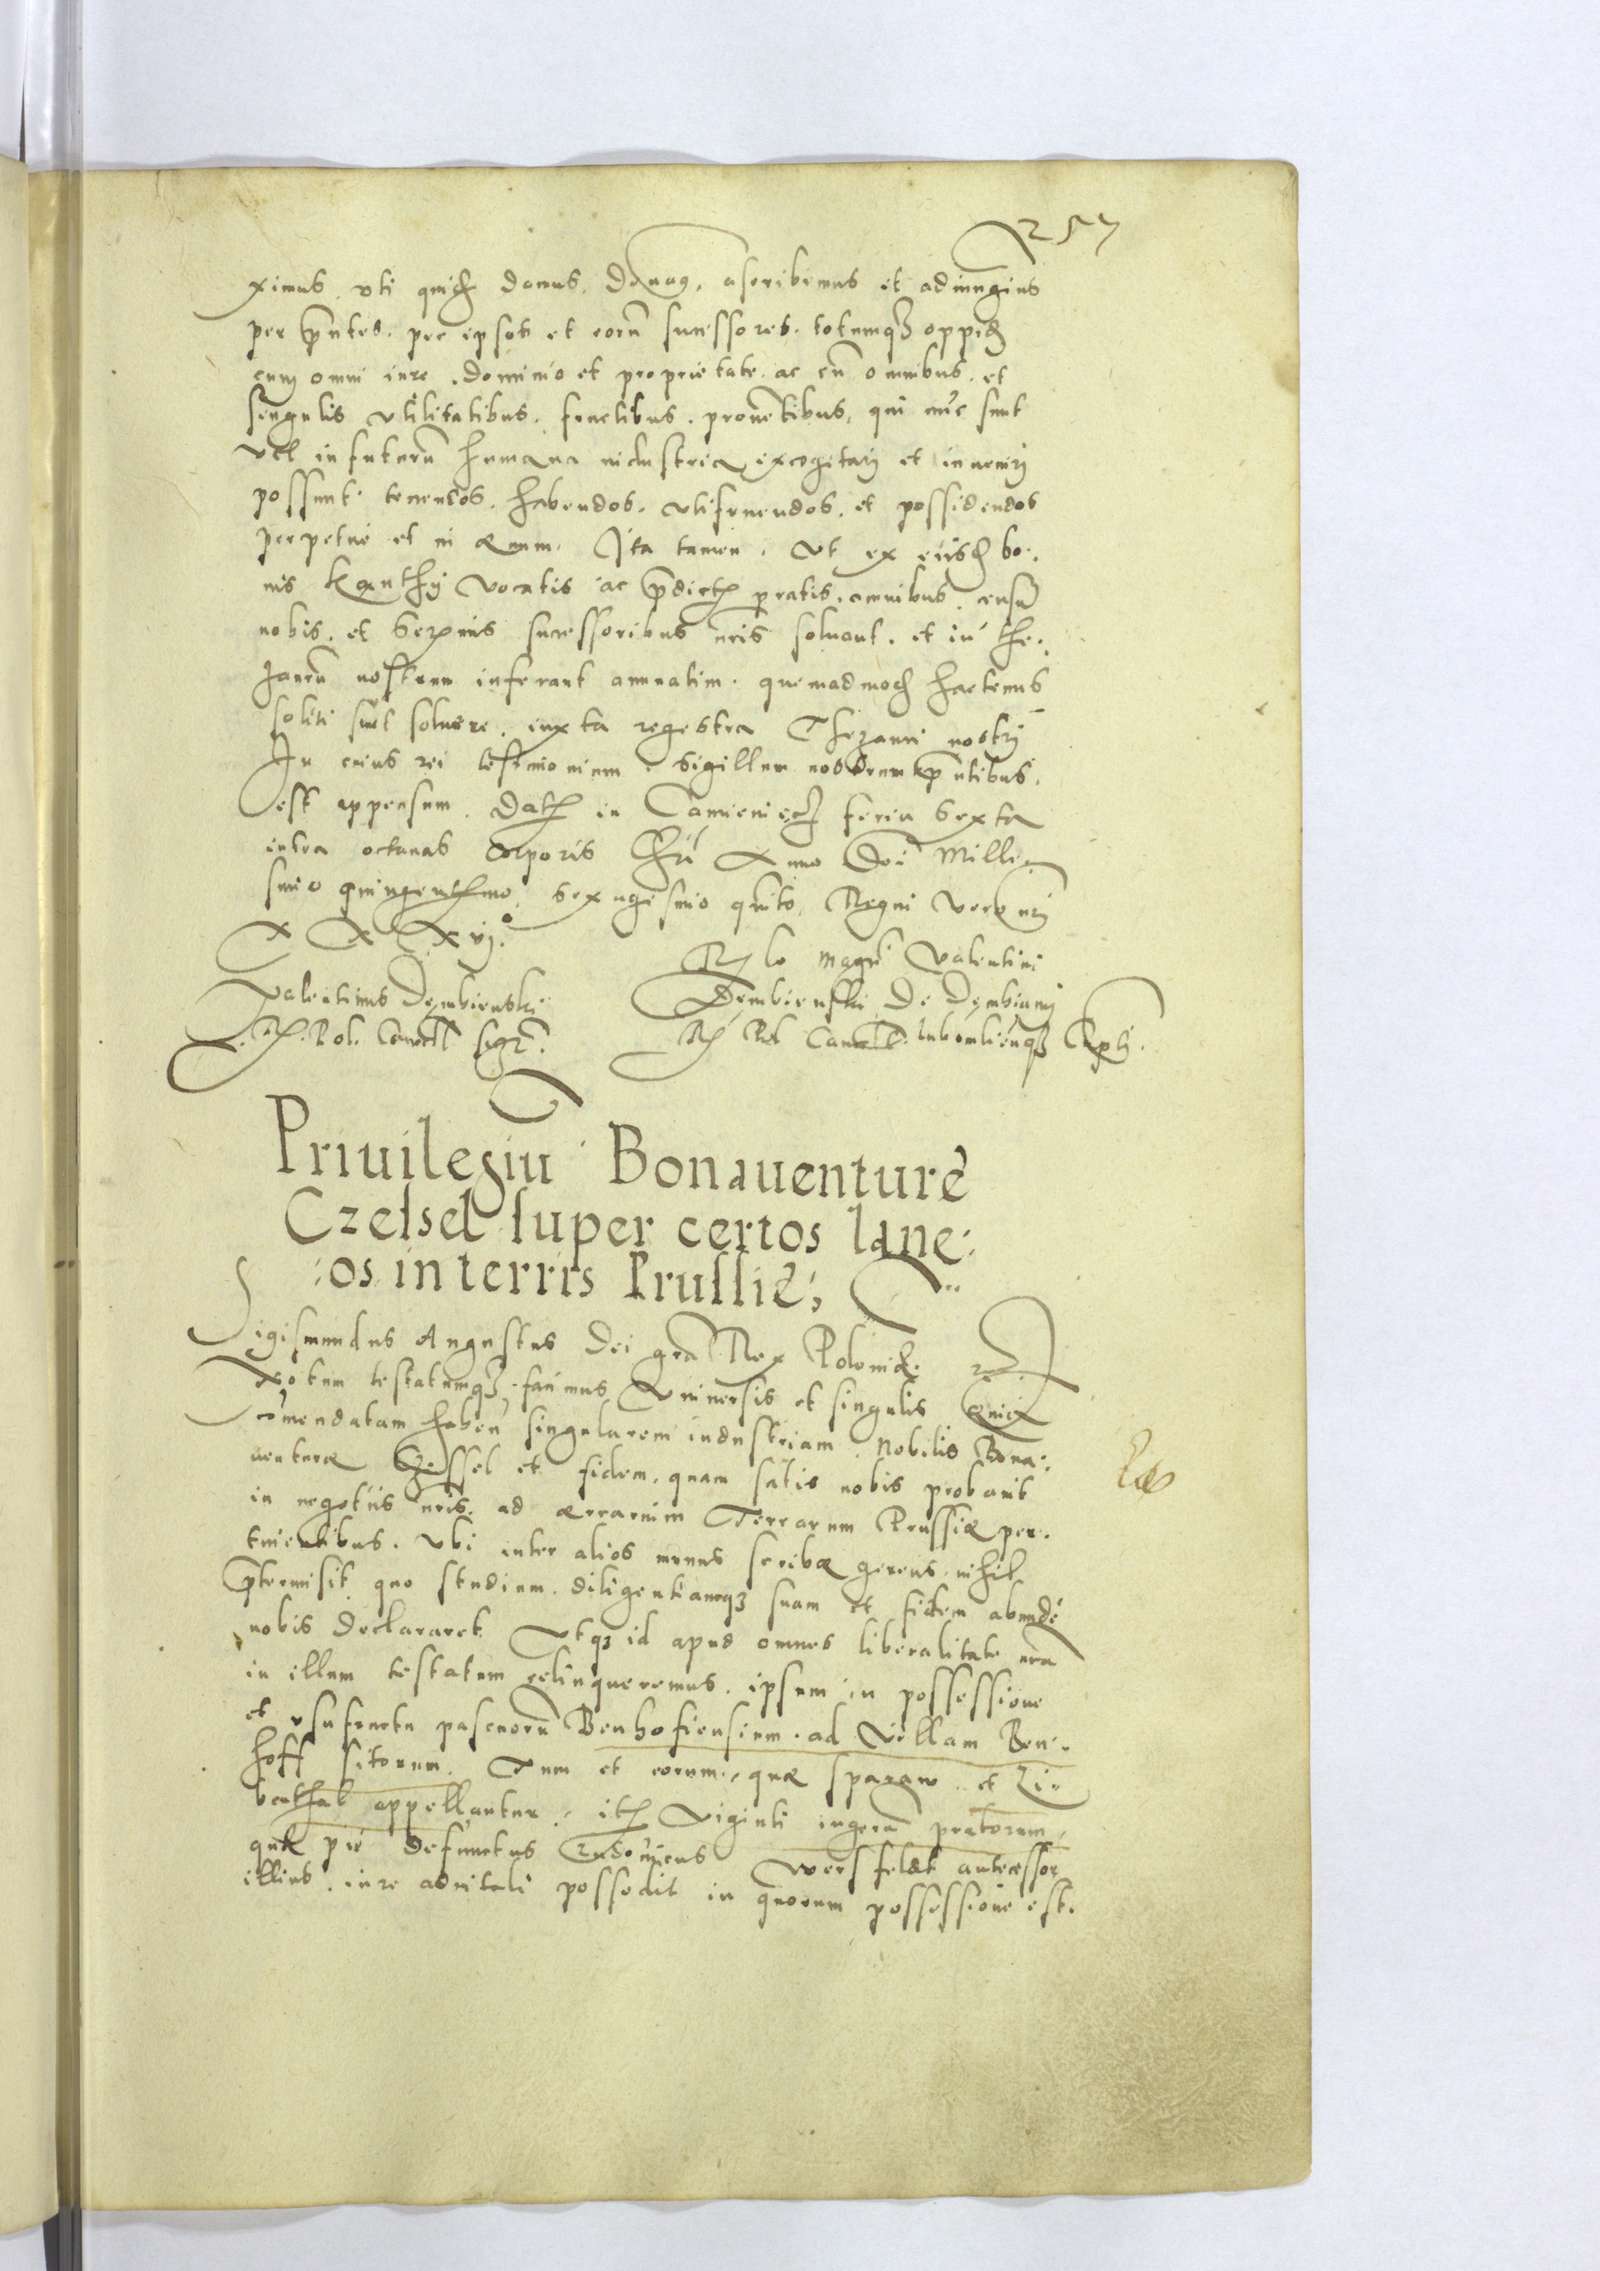 257
ximus, uti quidem damus, donamus, ascribimus et adiungimus
per pñtes. per ipsos et eorũ successores. totumqz oppidũ
cum omni iure, dominio et proprietate, ac cũ omnibus, et
singulis utilitatibus, fructibus, prouẽtibus, qui nũc sunt
vel in futurũ humana industria excogitari et inueniri
possunt tenendos, habendos, utifruendos, et possidendos
perpetuè et in æuum. Ita tamen, ut ex eiisdẽ bo:
nis Kęnthy vocatis ac p̃dictis pratis, omnibus, censũ
nobis, et Serenis successoribus nr̃is soluant, et in the:
zaurũ nostrum inferant annuatim, quemadmodũ hactenus
soliti sũt soluere, iuxta regestra Thezauri nostri
In cuius rei testimonium sigillum nostrum p̃ntibus
est appensum. Datũ in Camieniecz feria sexta
intra octauas Corporis Chri Anno Dñi Mille
simo quingentesimo, sexagesimo quinto, Regni vero nr̃i
XXXvj°.
Valentinus Dembienski
R. Pol. Cancell. sigt.
Relo Magci Valentini
Dembienski de Dembiany
R. Pol Cancell. lubomlieñqz Cap̃ti.
Priuilegiũ Bonauenturę
Czessel super certos lane:
:os in terris Prussię;
Sigismundus Augustus Dei gr̃a Rex Poloniæ. etc
Notum testatumqz facimus Vniuersis et singulis Quia
cõmendatam haben̄ singularem industriam Nobilis Bona:
uenturæ Czessel et fidem, quam satis nobis probauit
in negotiis nr̃is, ad ærarium Terrarum Prussiæ per:
tinentibus. Vbi inter alios munus scribæ gerens, nihil
p̃termisit quo studium, diligentiamqz suam et fidem abundè
nobis declararet Vtqz id apud omnes liberalitate nr̃a
in illum testatum relinqueremus, ipsum in possessione
et usufructu pascuorũ Benhofiensium, ad Villam Ben:
hoff sitorum. Tum et eorum, quæ sparaw et Li:
benthal appellantur, itẽ Viginti iugerũ pratorum,
quæ piè defunctus Ludouicus Wersfeldt antecessor
illius, iure aduitali possedit in quorum possessione est.